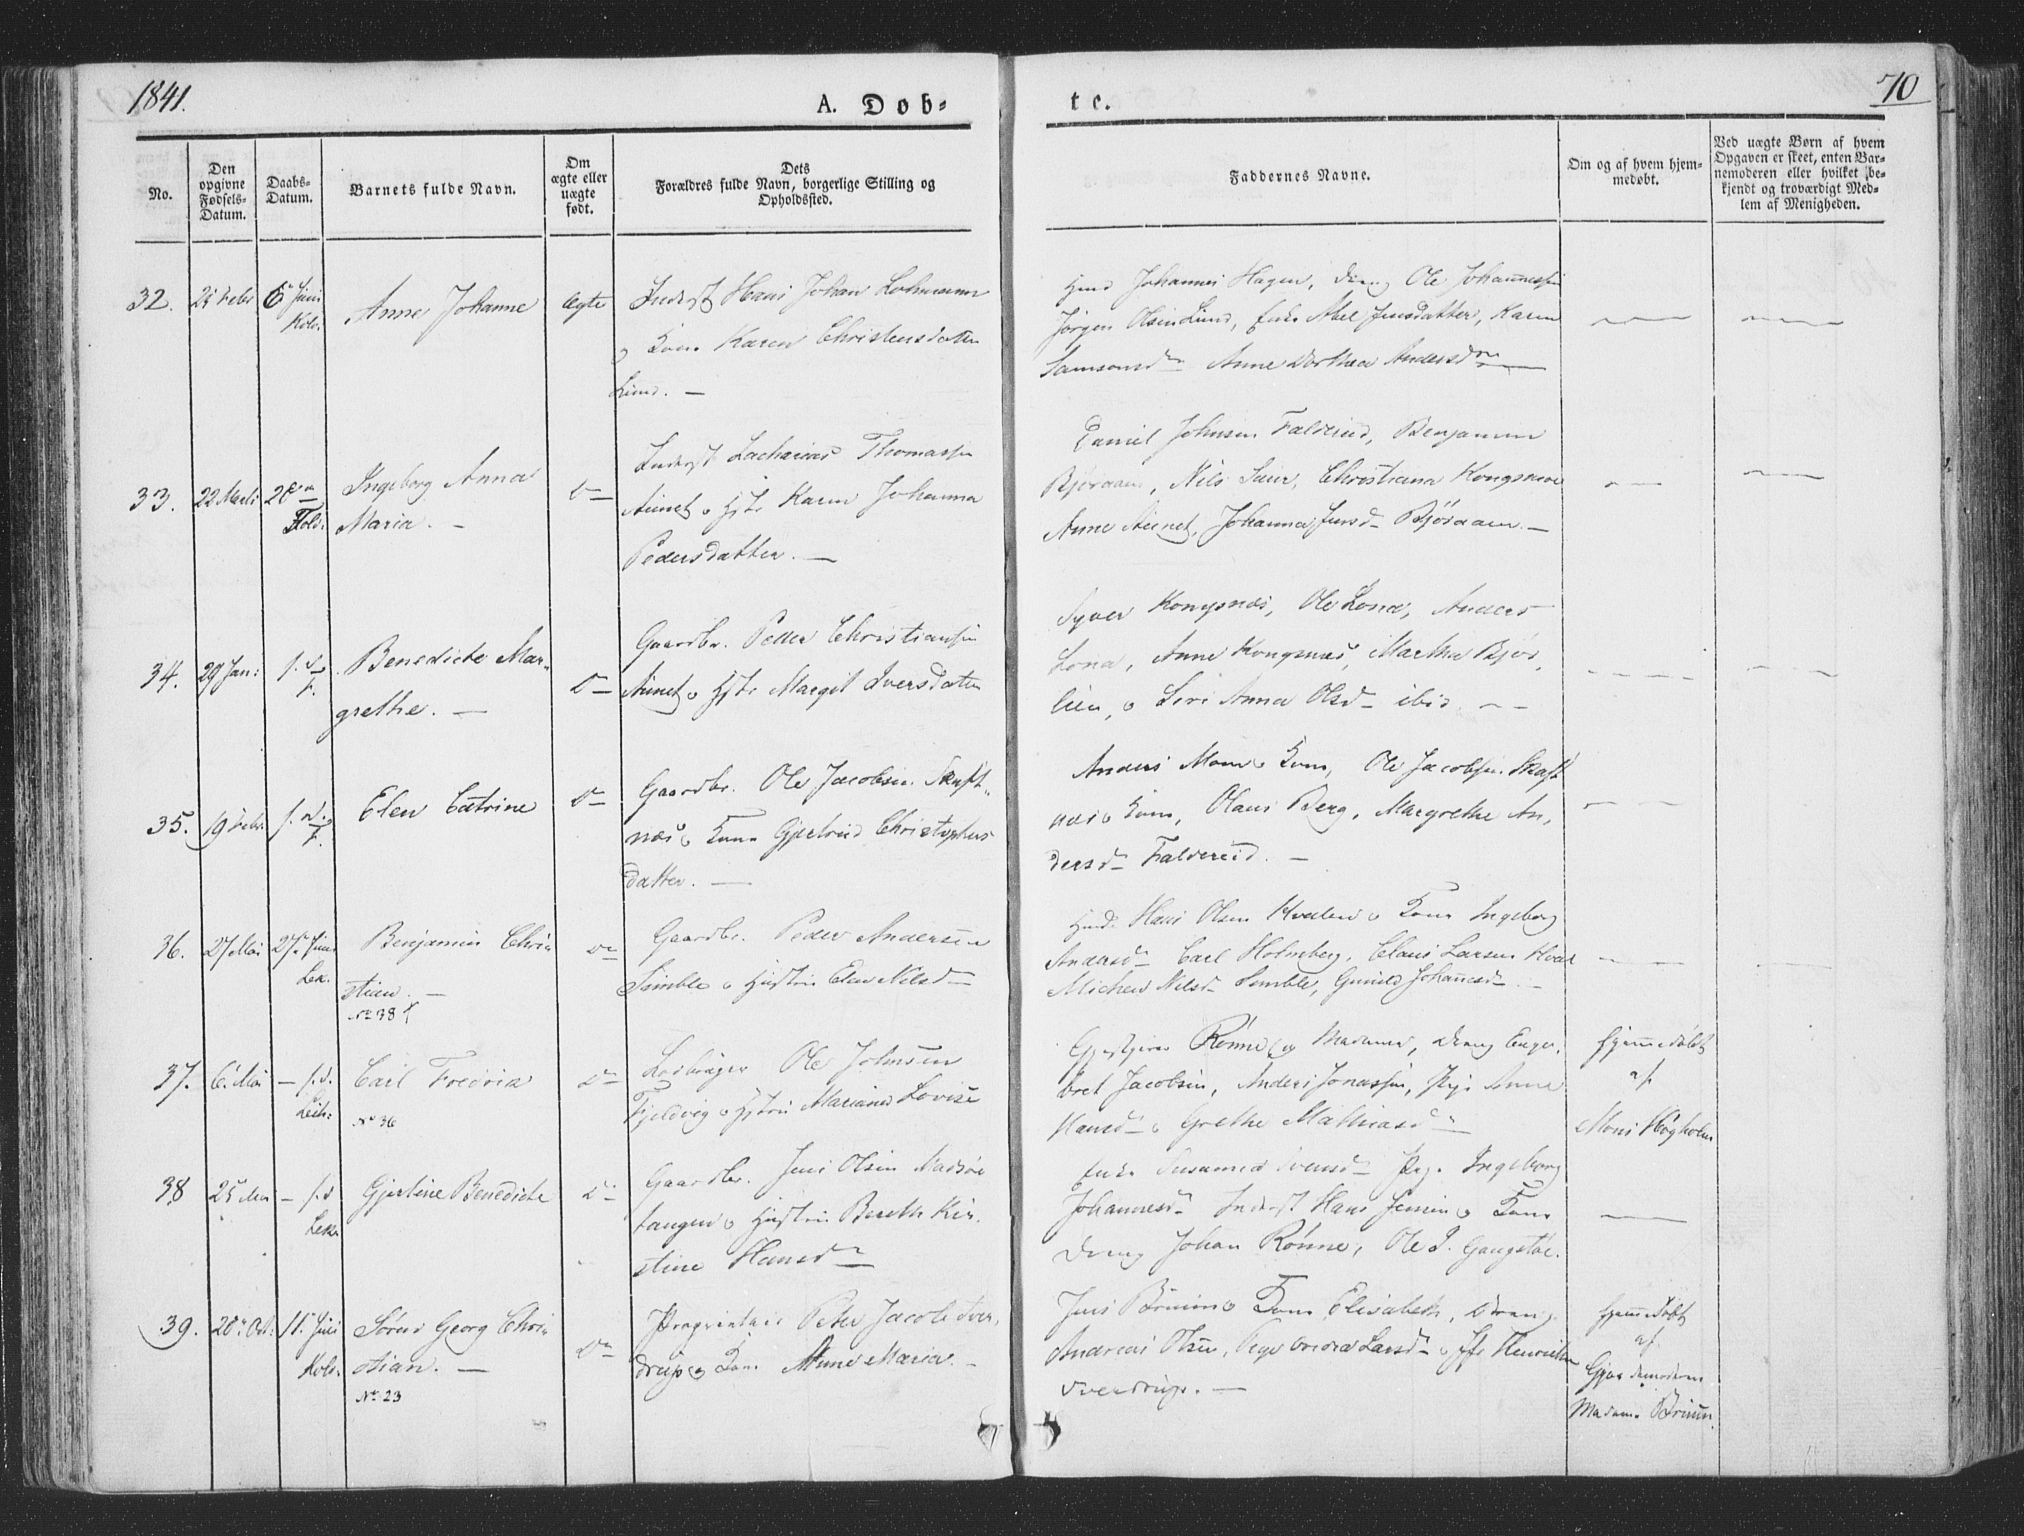 1841.
A. Döb=
te.
70
No.
Den
opgivne
Fødsels=
Datum.
Daabs=
Datum.
Barnets fulde Navn.
Om
ægte eller
uægte
født.
Dets
Forældres fulde Navn, borgerlige Stilling og
Opholdssted.
Faddernes Navne.
Om og af hvem hjem=
medøbt.
Ved uægte Børn af hvem
Opgaven er skeet, enten Bar=
nemoderen eller hvilket be=
kjendt og troværdigt Med=
lem af Menigheden.
32.
Febr
6te Juni
Kolv.
Anne Johanne
Ægte
Inderst Hans Johan Lohmann
o Kone Karen Christensdatter
Lund. —
Johannes Hagen, Dreng Ole Johannessen
Jørgen Olsen Lund, Enke Abel Jensdatter, Karen
Samsonsd. Anne Dorthea Andersd.
33.
22 Marti
Ingeborg Anna
Maria. —
Do
Inderst Zacharias Thomassen
Aunet o Hstr Karen Johanna
Pedersdatter. —
Daniel Johnsen Faldereid, Benjamin
Bjøraaen, Nils Christiana Kongsmoe
Anne Aunet, Johanna Jensd Bjøraaen. —
34.
29 Jan:
f. d.
Benedicte Mar=
grethe. —
Do
Gaardbr. Peder Christiansen
Aunet o Hstr Margit Iversdatter
Syver Kongsmoe, Ole Lona, Anders
Lona, Anne Kongsmoe, Martha Bjør=
lien, o Siri Anna Olsd ibid. —
35.
19 Febr
f. d.
Elen Catrine
Do
Gaardbr. Ole Jacobsen Skaft=
næs o Kone Gjertrud Christophers
datter. —
Anders Moen o Kone, Ole Jacobsen Skaft
næs o Kone, Olaus Berg, Margrethe An=
dersd Faldereid. —
36.
27 Mai
27de Juni
Lek.
Benjamin Chri=
stian. —
No 38
Do
Gaardbr. Peder Andersen
Simble o Hustru Elen Nilsd
Hans Olsen Hvalen o Kone Ingeborg
Andersd Carl Holmberg, Claus Larsen Hval
Nilsd Semble, Gunild Johannesd —
37.
6. Mai
— f. d.
Lek:
Carl Fredric
No 36
Do
Ole Johnsen
Fjeldvig o Hstru Mariane Lovise
Gjestgiver Rönne og Madame, Dreng Enge=
bret Jacobsen, Anders Jonassen, Pige Anne
Hansd o Grethe Mathiasd
Hjemmedöbt
af
Moni Høgholm
38
25 Mai
— f. d
Lek.
Gjertine Benedicte
Do
Gaardbr. Jens Olsen Madsøe
tangen o Hustru Bereth Kir=
stine Hansd
Enke Susanna Svensd Pige Ingeborg
Johannesd Inderst Hans Jensen o Kone
Dreng Johan Rönne, Ole J. Gangstøe.
39.
28de Oct:
11te Juli
Kolv.
Sören Georg Chri=
stian. —
No 23
Do
Proprietair Peter Jacob Sver=
drup o Kone Anne Maria. —
Jens Brüün o Kone Elisabeth, Dreng
Andreas Olsen, Pige Larsd o Jfr Henriette
Sverdrup. —
Hjemmedöbt
af
Gjordemoderen
Madame Brüün.